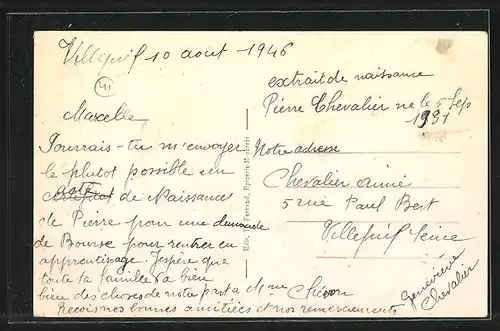 Villejuif 10 aout 1946
Marcelle
Pourrais-tu m'envoyer
le plutot possible un
certificat acte de Naissance
de Pierre pour une demande
de Bourse pour rentrer en
apprentissage. J'espère que
toute ta famille va bien
bien des choses de notre part a Mme
Reçois nos bonnes amitiées et nos remerciements
extrait de naissance
Pierre Chevalier ne le 5 Sep
1931
Notre adresse
Chevalier Aimé
5 rue Paul Bert
Villejuif Seine
Genevieve
Chevalier